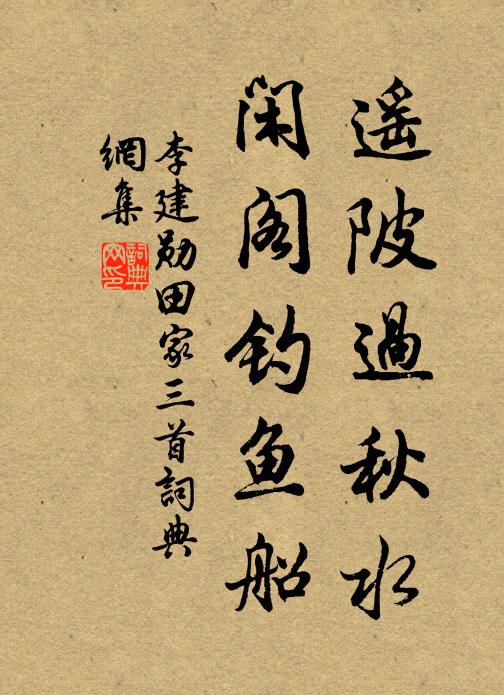 遥陂過秋水
閑阁钓鱼船
李建勋田家三首詞典
網集
詞典
网印